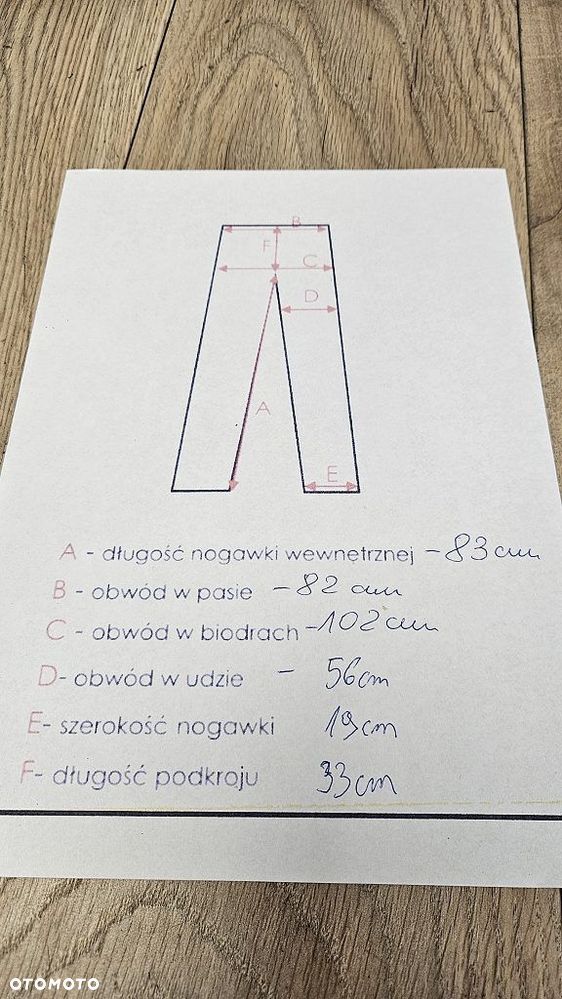 B
F
C
D
A
E
A - długość nogawki wewnętrznej - 83 cm
B - obwód w pasie - 82 cm
C - obwód w biodrach - 102 cm
D- obwód w udzie - 56cm
E- szerokość nogawki 19cm
F- długość podkroju 33cm
OTOMOTO